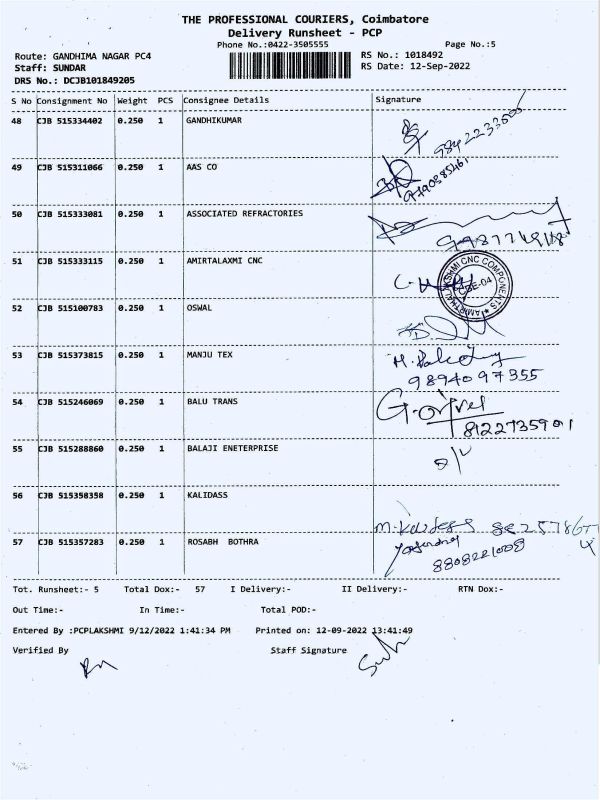 THE PROFESSIONAL COURIERS, Coimbatore
Delivery Runsheet - PCP
Phone No.:0422-3505555 Page No.:5
Route: GANDHIMA NAGAR PC4 RS No.: 1018492
Staff: SUNDAR RS Date: 12-Sep-2022
DRS No.: DCJB101849205
S No Consignment No Weight PCS Consignee Details Signature
48 CJB 515334402 0.250 1 GANDHIKUMAR
49 CJB 515311066 0.250 1 AAS CO
50 CJB 515333081 0.250 1 ASSOCIATED REFRACTORIES
51 CJB 515333115 0.250 1 AMIRTALAXMI CNC
CBE-04
52 CJB 515100783 0.250 1 OSWAL
53 CJB 515373815 0.250 1 MANJU TEX
9894097355
54 CJB 515246069 0.250 1 BALU TRANS
8122735901
55 CJB 515288860 0.250 1 BALAJI ENETERPRISE
56 CJB 515358358 0.250 1 KALIDASS
57 CJB 515357283 0.250 1 ROSABH BOTHRA
8808221008
Tot. Runsheet:- 5 Total Dox:- 57 I Delivery:- II Delivery:- RTN Dox:-
Out Time:- In Time:- Total POD:-
Entered By :PCPLAKSHMI 9/12/2022 1:41:34 PM Printed on: 12-09-2022 13:41:49
Verified By Staff Signature